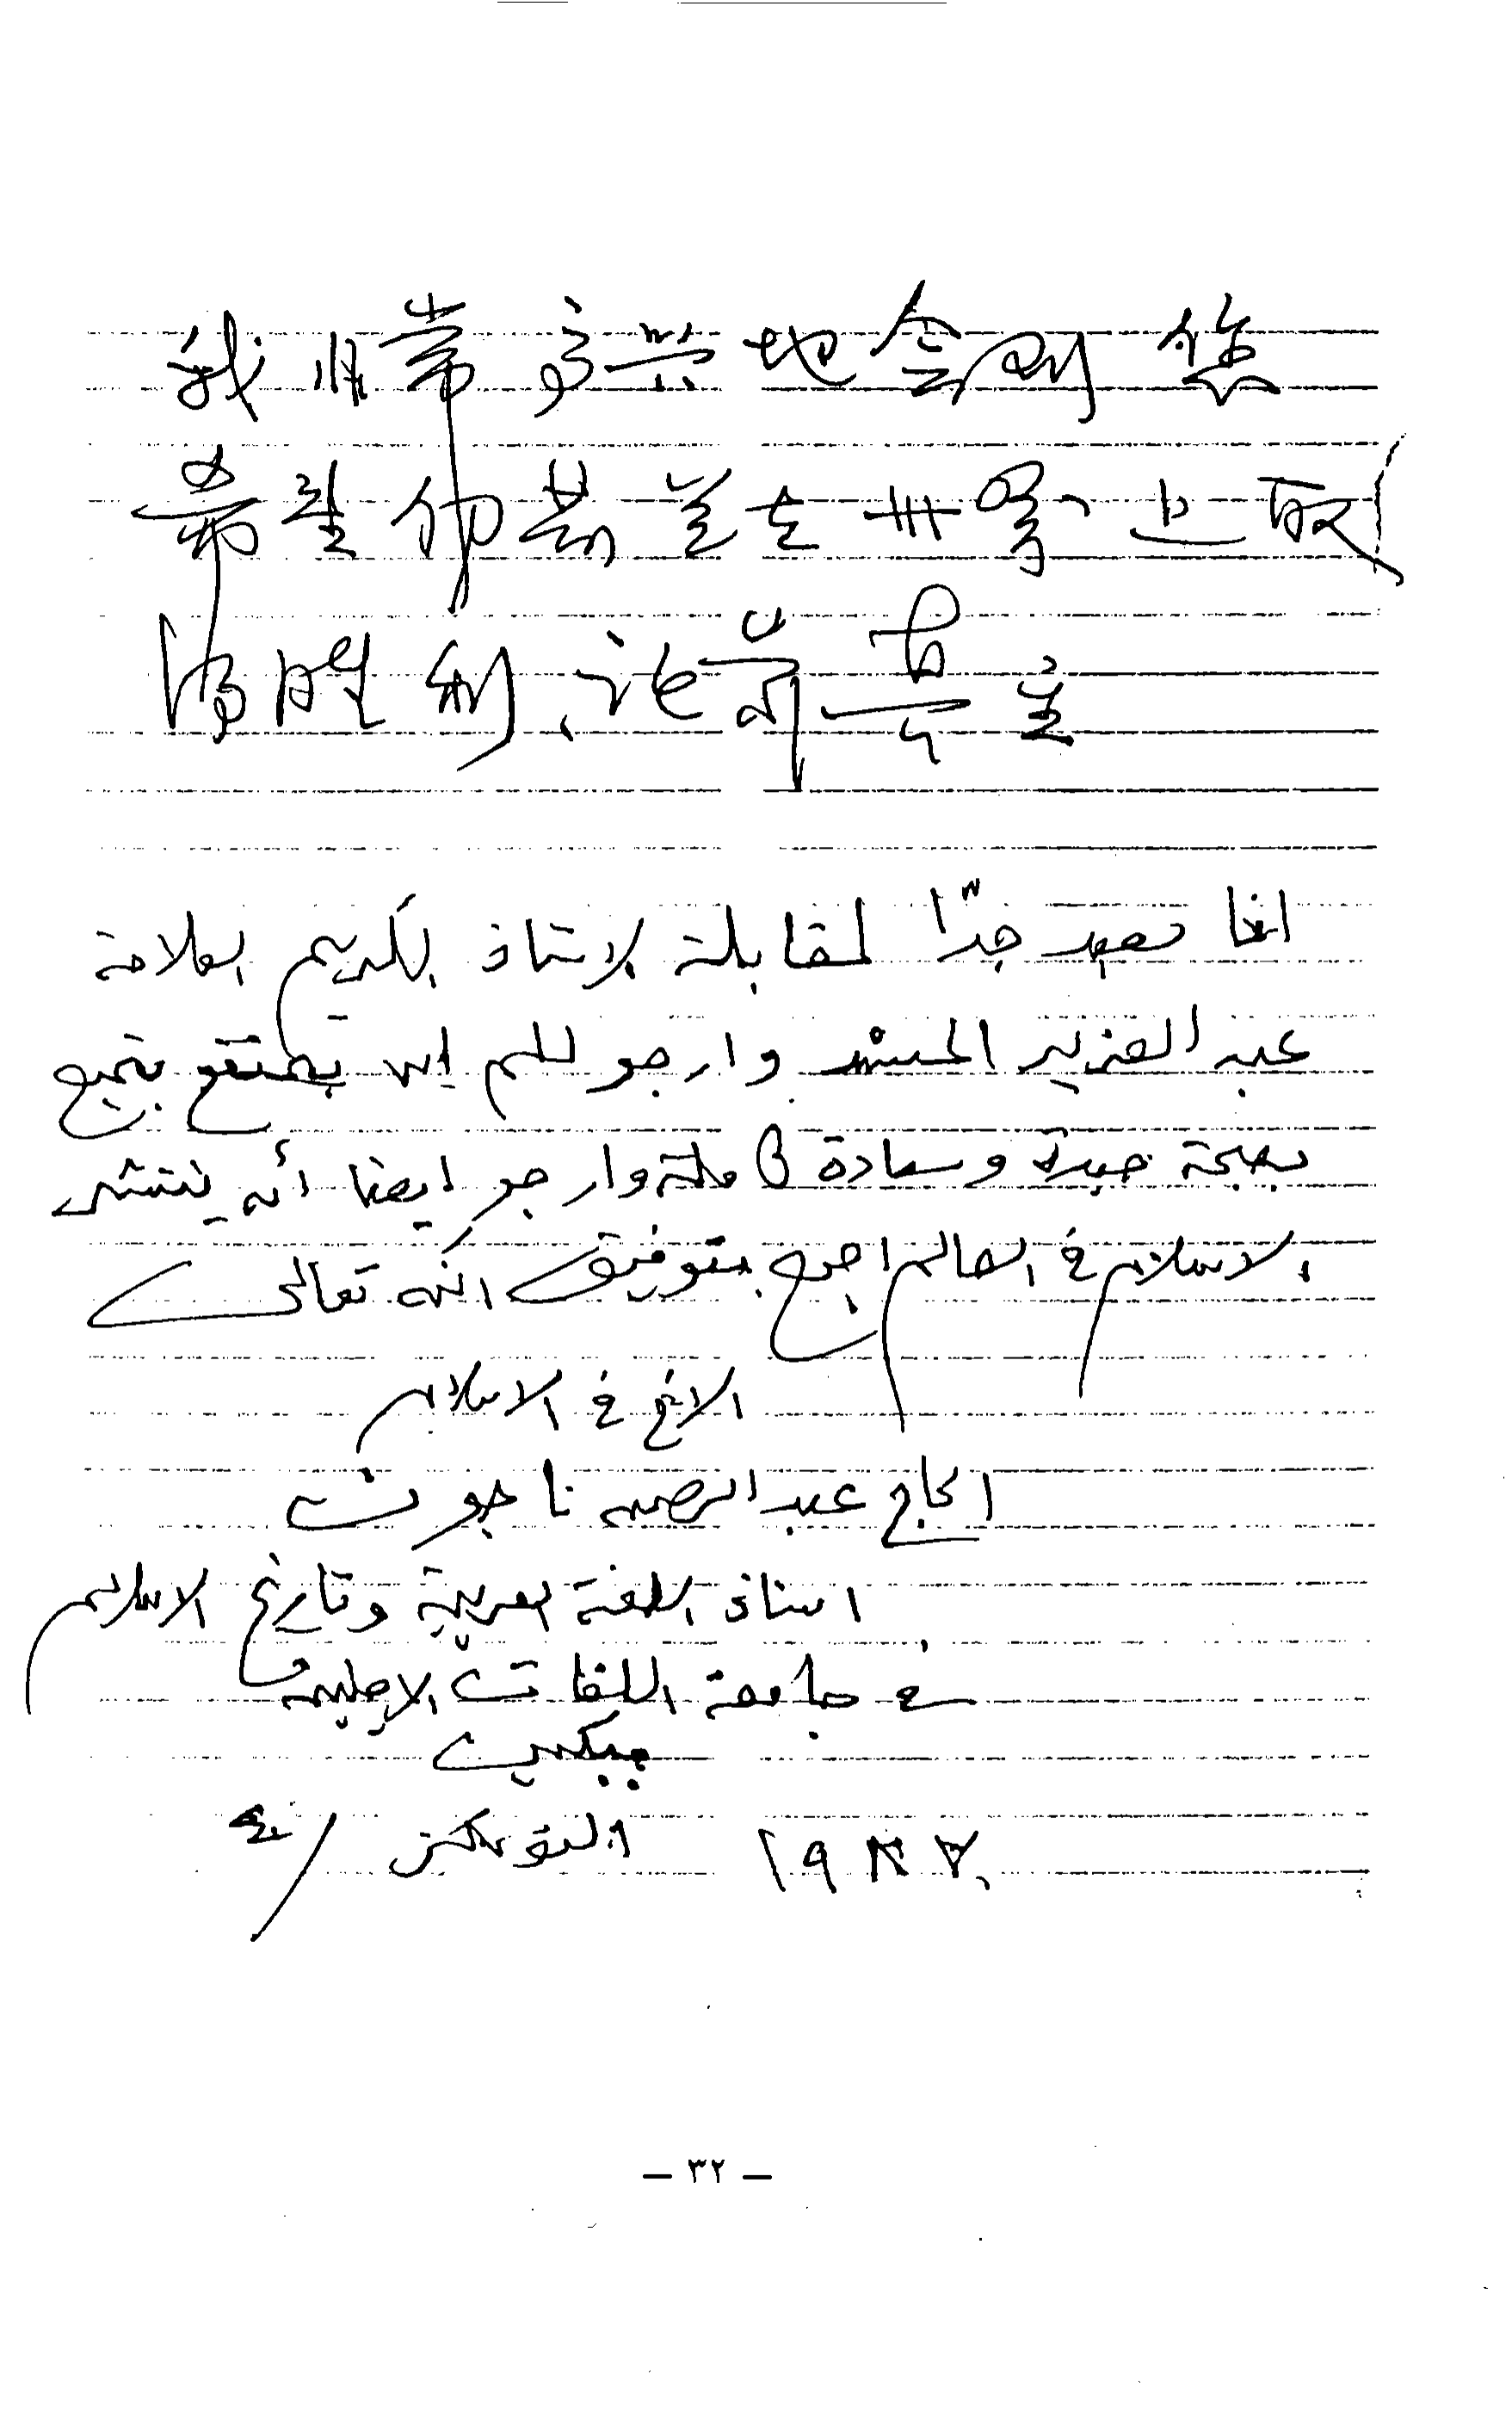 我非常高兴地会到您
希望伊斯兰在世界上取
得胜利，祝尊贵
انا سعيد جدّا لمقابلة الاستاذ الكريم العلامة
عبد العزيز المسند وارجو لكم ان يتمتع
بصحة جيدة وسعادة كاملة وارجو ايضا أن ينتشر
الاسلام في العالم اجمع بتوفيق الله تعالى
الاخ في الاسلام
الحاج عبد الرحمن ناجون
استاذ اللغة العربية وتاريخ الاسلام
في جامعة اللغات
ببكين
١٩٨٧
— ٣٢ —